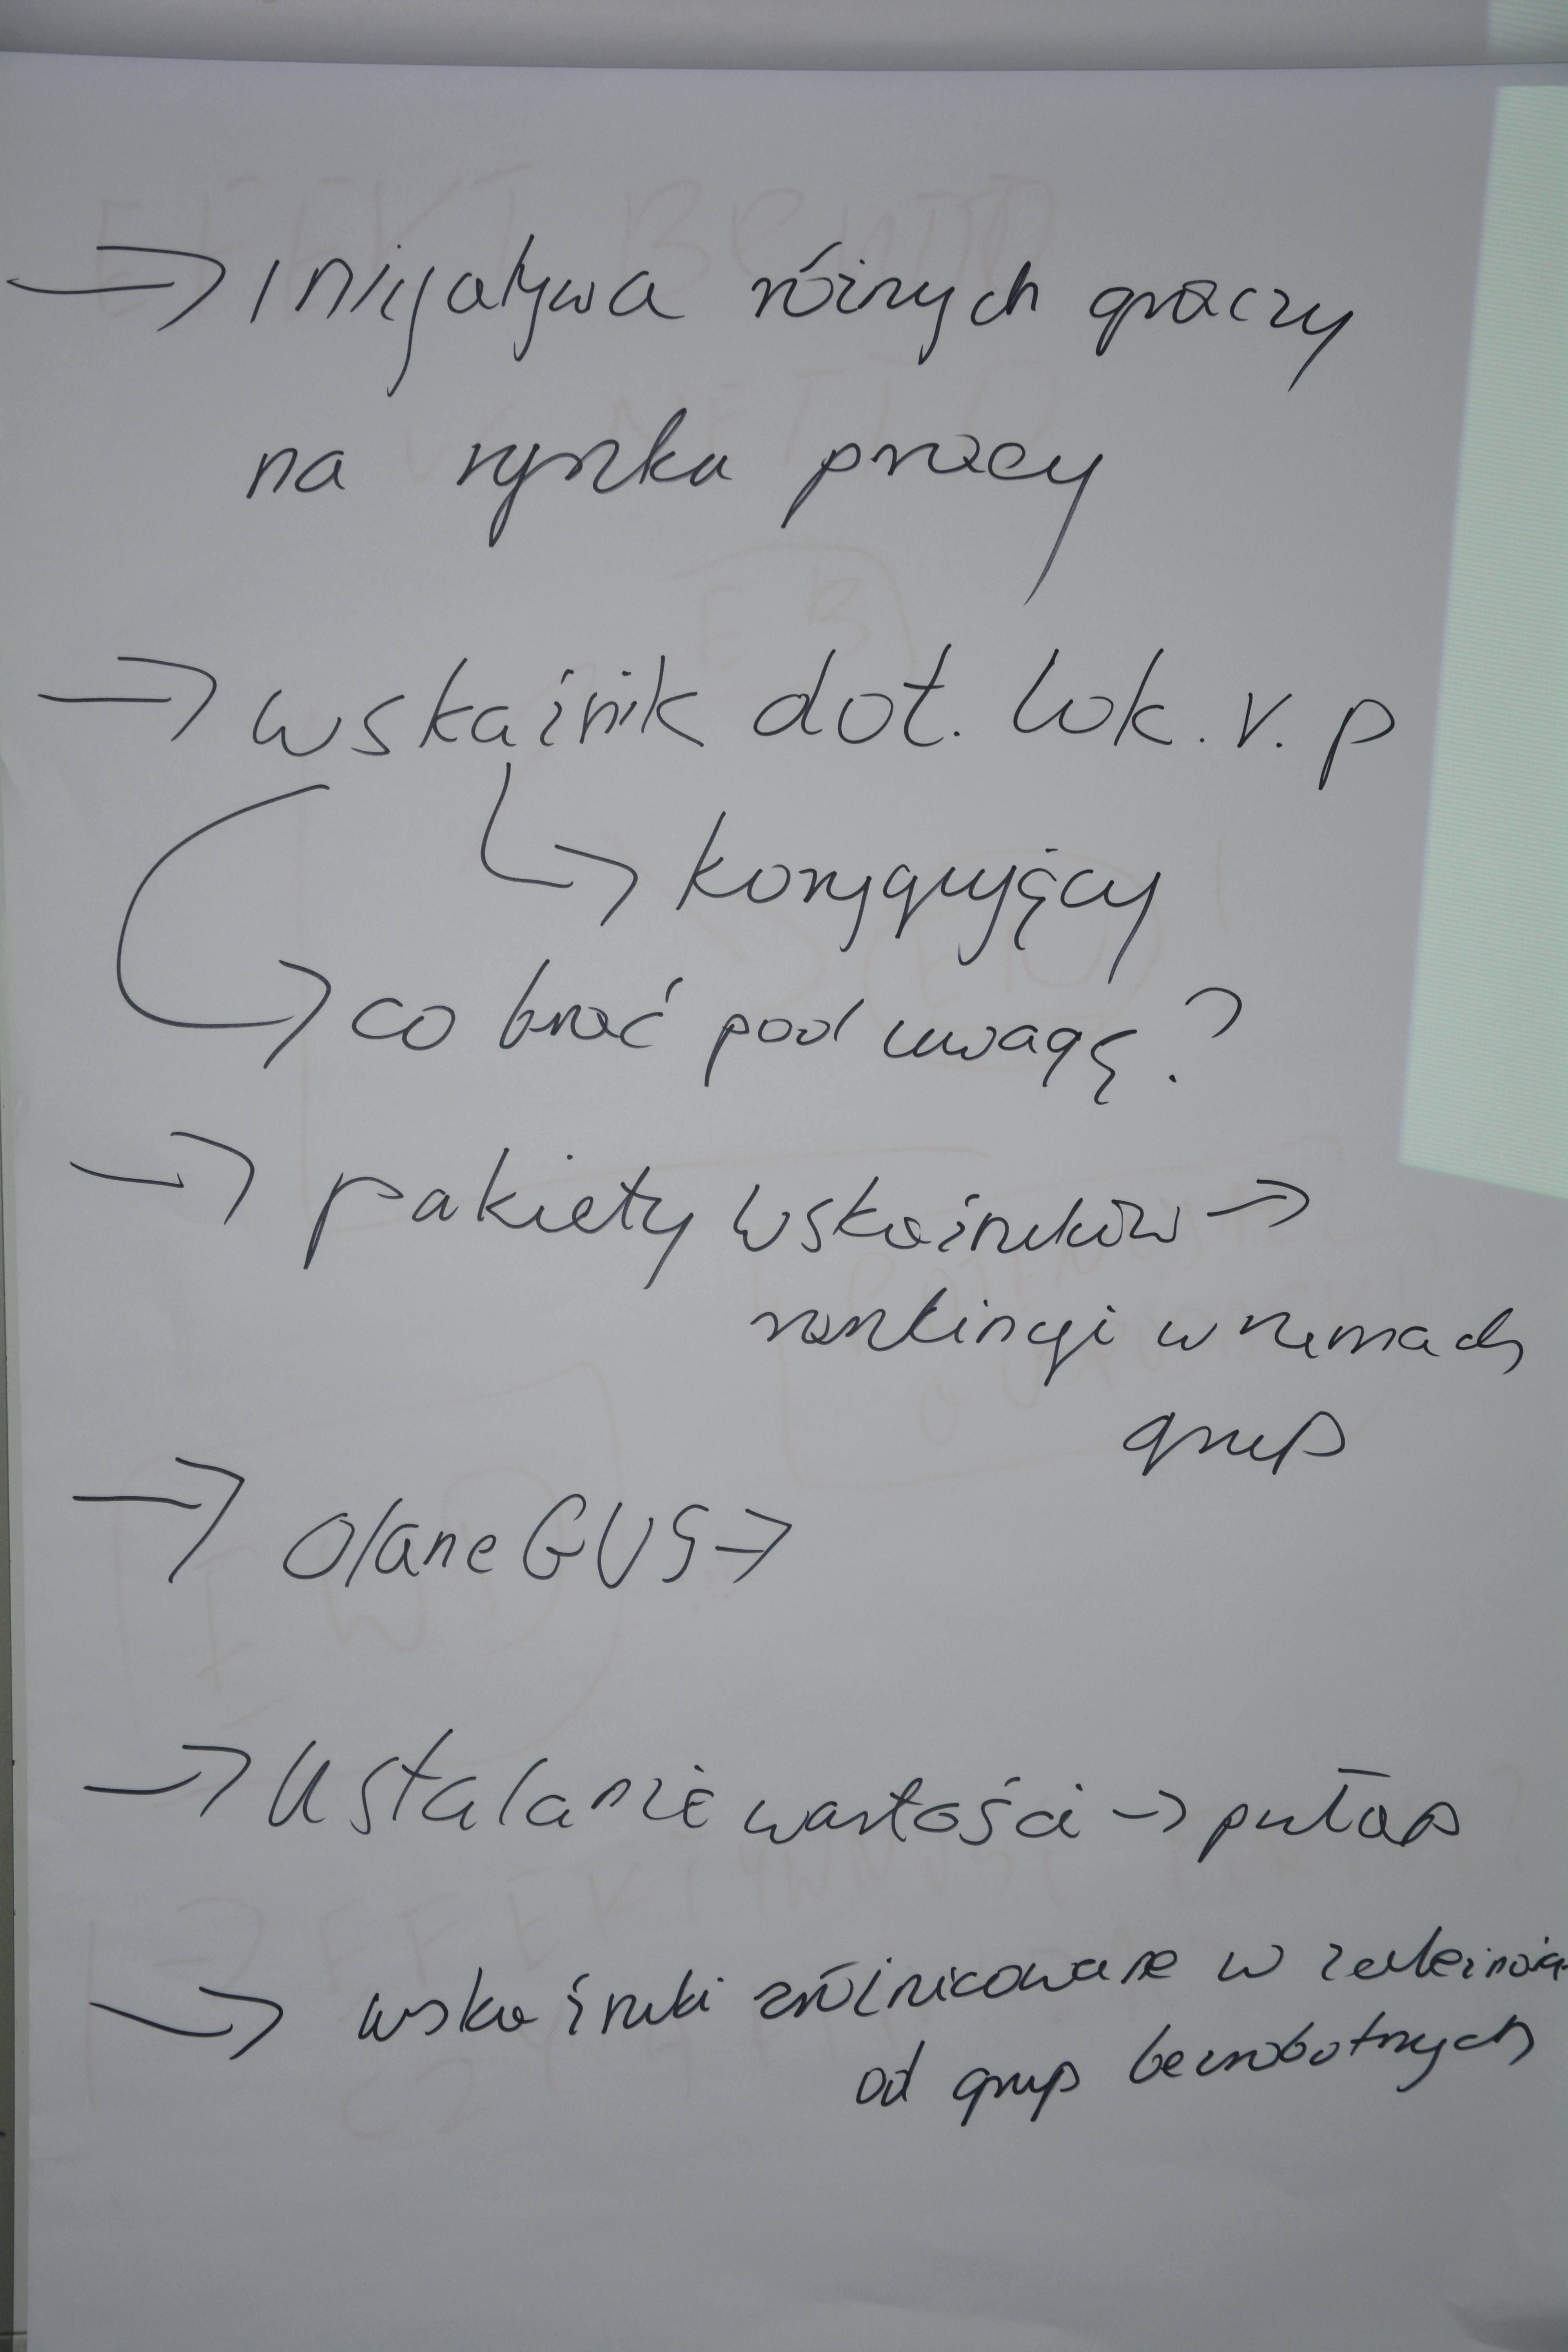 → inicjatywa różnych graczy
na rynku pracy
→ wskaźnik dot. lok. r. p
↳ korygujący
→ co brać pod uwagę?
→ pakiety wskaźników →
rankingi w ramach
grup
→ dane GUS →
→ ustalanie wartości → pułap
→ wskaźniki zróżnicowane w
od grup bezrobotnych